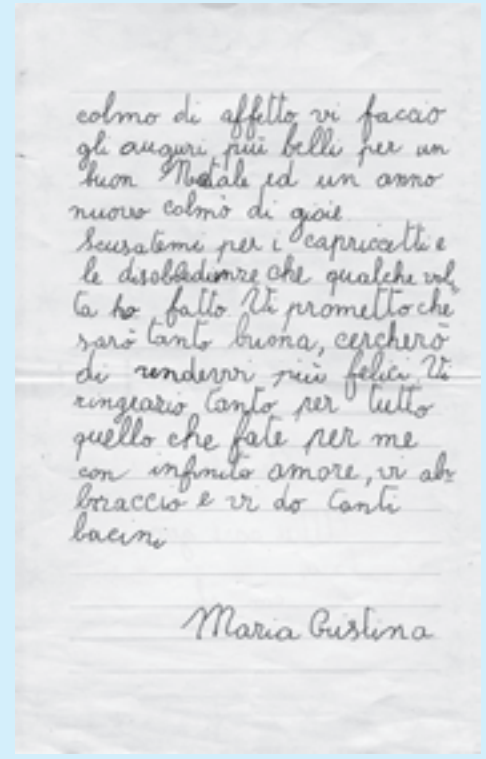 colmo di affetto vi faccio
gli auguri più belli per un
buon Natale ed un anno
nuovo colmo di gioie
Scusatemi per i capriccetti e
le disobbedienze che qualche vol
ta ho fatto Vi prometto che
sarò tanto buona, cercherò
di rendervi più felici Vi
ringrazio tanto per tutto
quello che fate per me
con infinito amore, vi ab-
braccio e vi do tanti
bacini
Maria Cristina